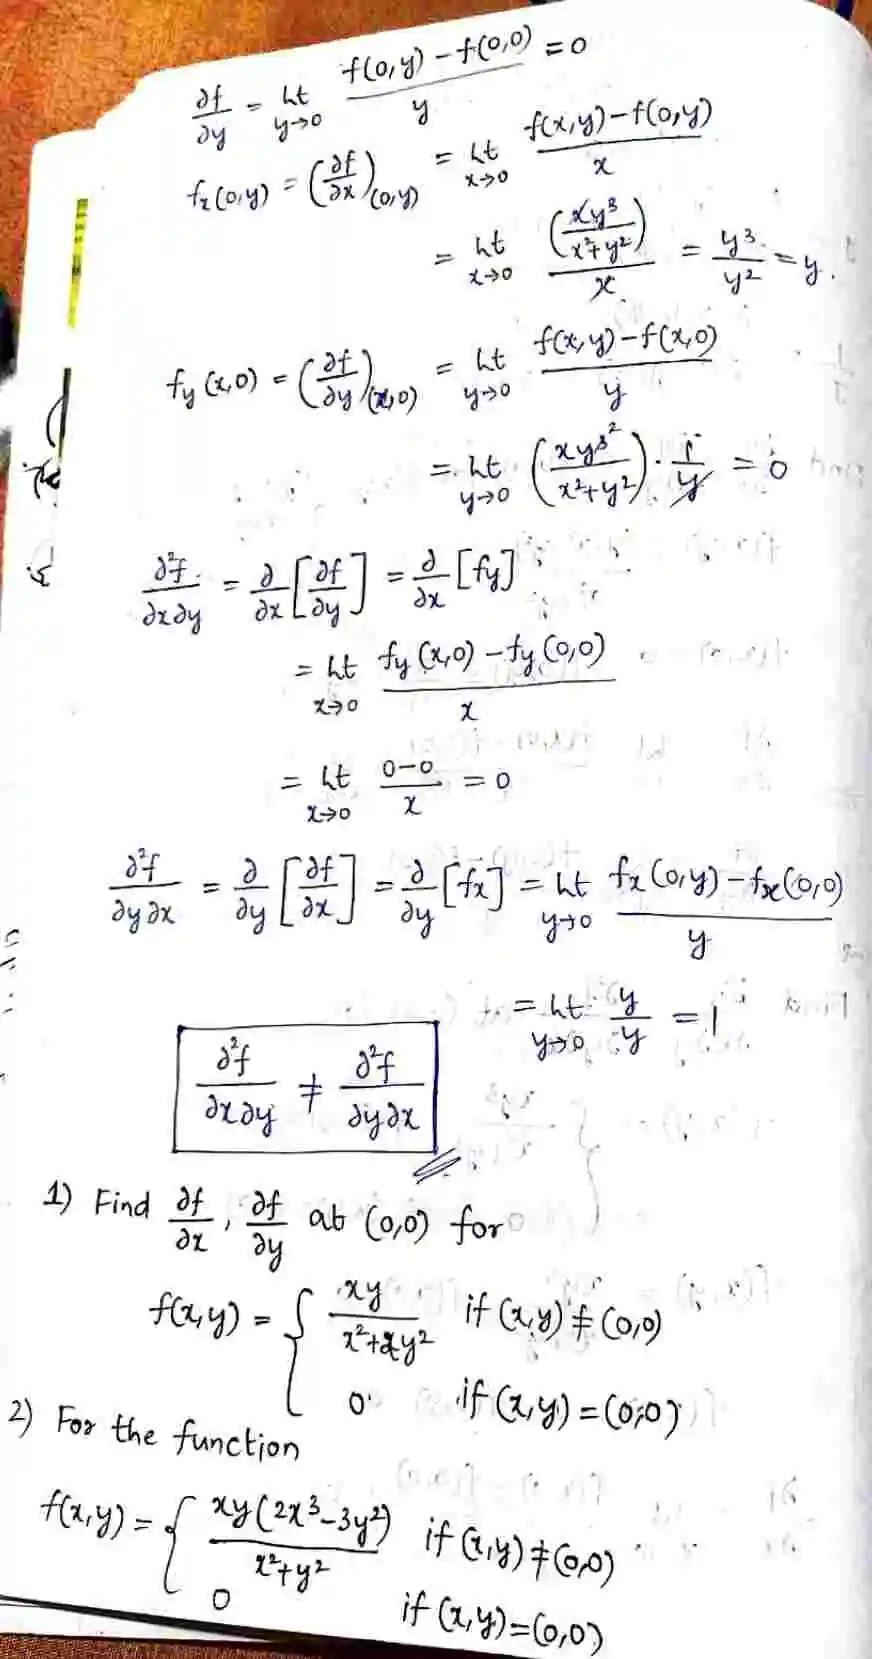 ∂f/∂y = Lt y→0 (f(0,y) - f(0,0))/y = 0
fx(0,y) = (∂f/∂x)(0,y) = Lt x→0 (f(x,y) - f(0,y))/x
= Lt x→0 (xy³/(x²+y²))/x = y³/y² = y.
fy(x,0) = (∂f/∂y)(x,0) = Lt y→0 (f(x,y) - f(x,0))/y
= Lt y→0 (xy³/(x²+y²)) · 1/y = 0
∂²f/∂x∂y = ∂/∂x [∂f/∂y] = ∂/∂x [fy]
= Lt x→0 (fy(x,0) - fy(0,0))/x
= Lt x→0 (0-0)/x = 0
∂²f/∂y∂x = ∂/∂y [∂f/∂x] = ∂/∂y [fx] = Lt y→0 (fx(0,y) - fx(0,0))/y
= Lt y→0 y/y = 1
∂²f/∂x∂y ≠ ∂²f/∂y∂x
1) Find ∂f/∂x, ∂f/∂y at (0,0) for
f(x,y) = { xy/(x²+2y²) if (x,y) ≠ (0,0)
0 if (x,y) = (0,0)
2) For the function
f(x,y) = { xy(2x³-3y²)/(x²+y²) if (x,y) ≠ (0,0)
0 if (x,y) = (0,0)